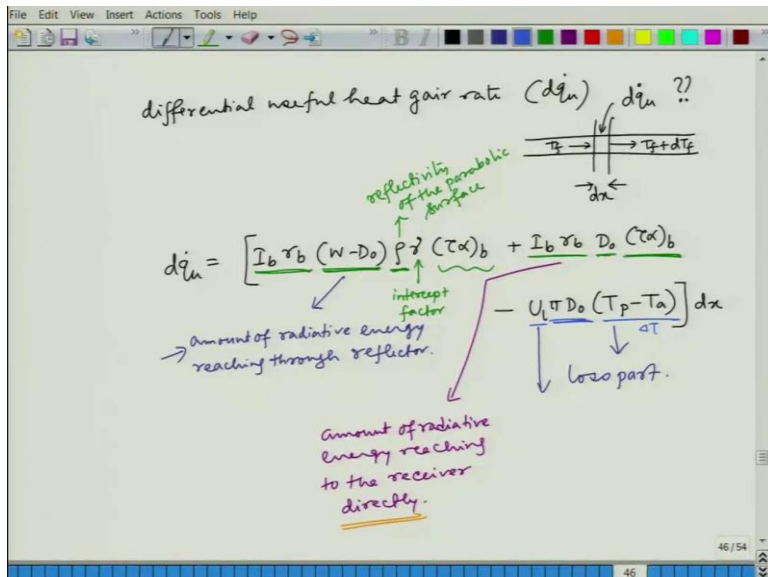 File Edit View Insert Actions Tools Help
differential useful heat gair rate (dq̇u) dq̇u ??
Tf → → Tf+dTf
→ dx ←
reflectivity
of the parabolic
surface
dq̇u = [Ib rb (W-Do) ρ γ (τα)b + Ib rb Do (τα)b
intercept
factor
- Ul π Do (Tp-Ta)] dx
ΔT
→ amount of radiative energy
reaching through reflector.
loss part.
amount of radiative
energy reaching
to the receiver
directly.
46/54
46